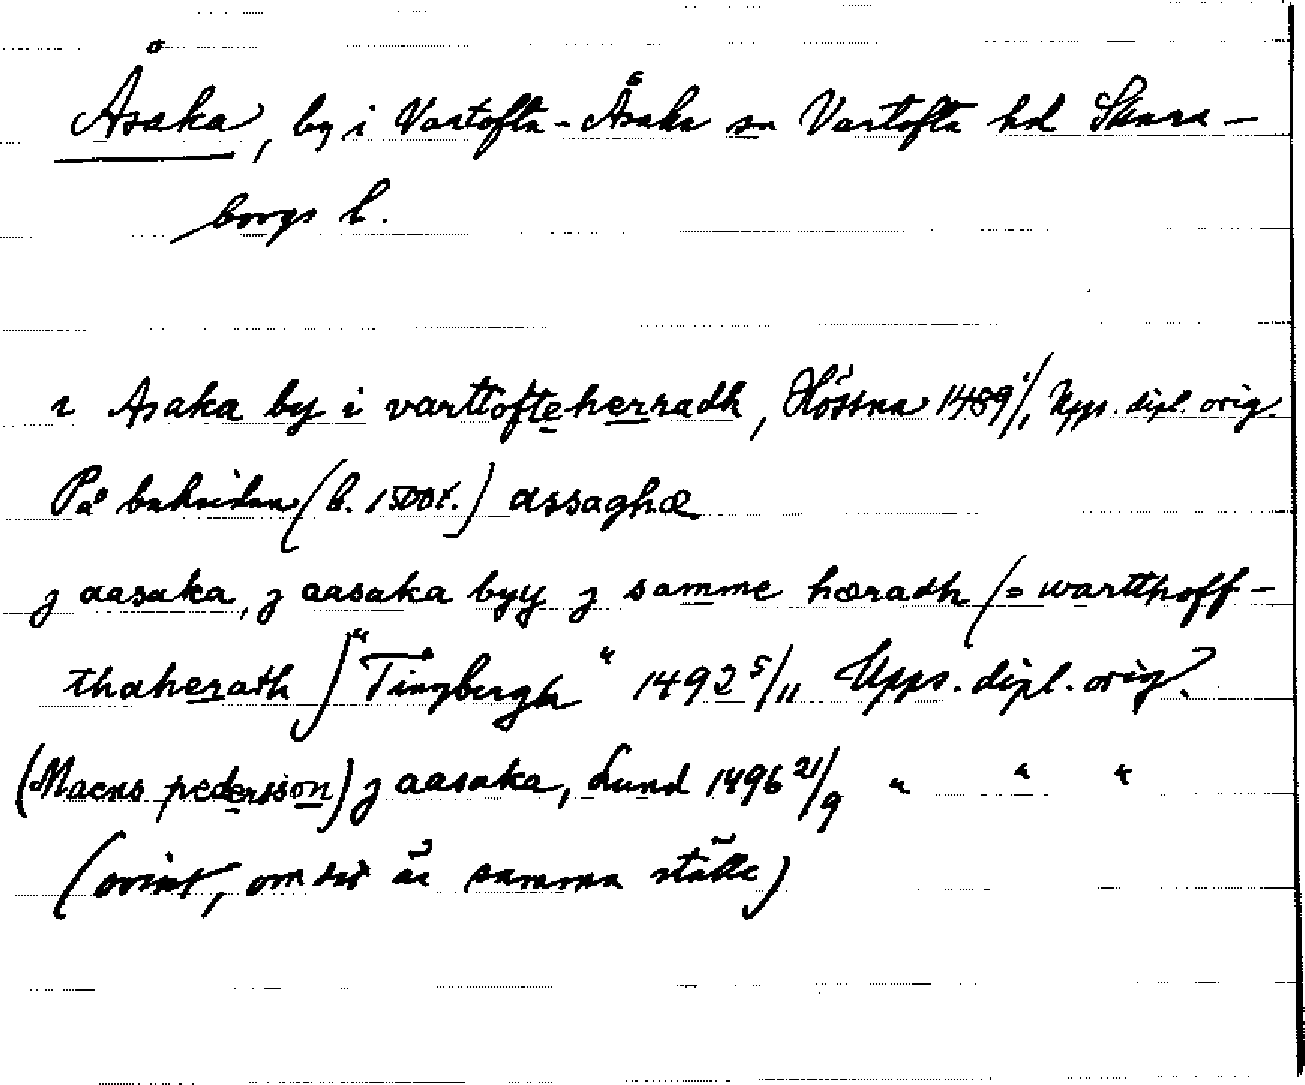 Åsaka, by i Vartofta-Åsaka sn Vartofta hd Skara-
borgs l.
i Asaka by i varttofteherradh, Hössna 1489 1/1 Upps. dipl. orig.
På baksidan (b. 1500t.) assaghæ
j aasaka, j aasaka byy j samme hæradh (= wartthoff-
thaherath) "Tingbergh" 1492 5/11 Upps. dipl. orig?
(Maens pedersson) j aasaka, Lund 1496 21/9 " " "
(ovisst, om det är samma ställe)